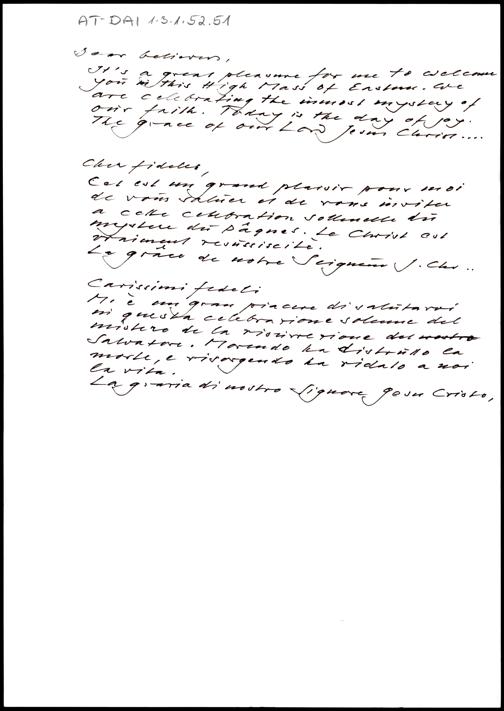 AT-DAI 1.3.1.52.51
Dear believers,
It's a great pleasure for me to welcome
you in this High Mass of Eastern. We
are celebrating the inmost mystery of
our faith. Today is the day of joy.
The grace of our Lord Jesus Christ....
Cher fideles,
Cet est un grand plaisir pour moi
de vous saluer et de vous inviter
a cette celebration solenelle du
mystere du Pâques. Le Christ est
vraiment resusciscité.
La grâce de notre Seigneur J. Chr...
Carissimi fedeli
Mi è un gran piacere di salutarvi
in questa celebrazione solenne del
mistero de la risurrezione del nostro
Salvatore. Morendo ha distrutto la
morte, e risorgendo ha ridato a noi
la vita.
La grazia di nostro Signore Jesu Cristo,